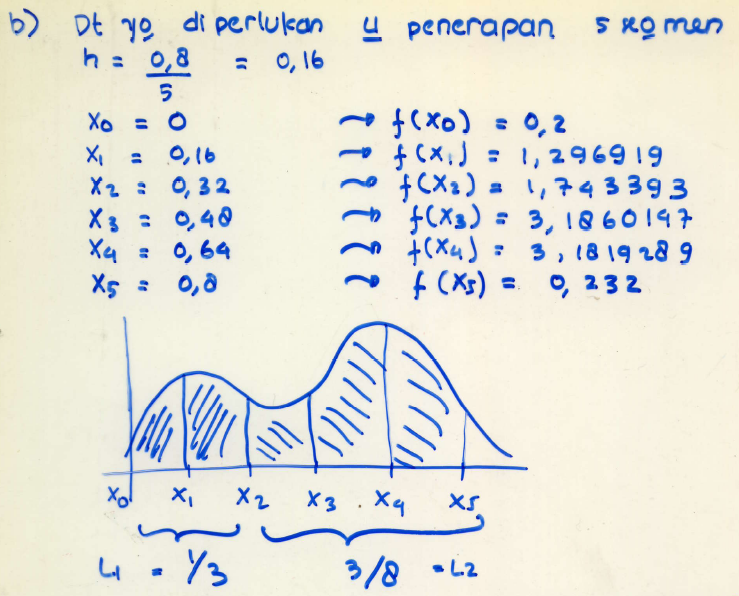 b) Dt yg diperlukan u penerapan 5 segmen
h = 0,8 / 5 = 0,16
x0 = 0 → f(x0) = 0,2
x1 = 0,16 → f(x1) = 1,296919
x2 = 0,32 → f(x2) = 1,743393
x3 = 0,48 → f(x3) = 3,1860147
x4 = 0,64 → f(x4) = 3,1819289
x5 = 0,8 → f(x5) = 0,232
x0 x1 x2 x3 x4 x5
L1 = 1/3 3/8 = L2